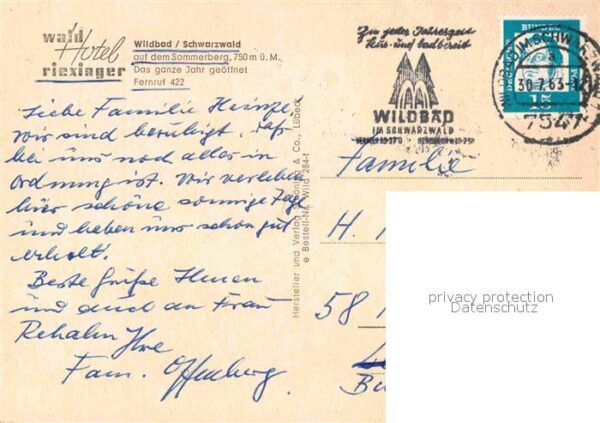 wald
Hotel
riexinger
Wildbad / Schwarzwald
auf dem Sommerberg, 750 m ü. M.
Das ganze Jahr geöffnet
Fernruf 422
Liebe Familie Heinzel,
wir sind beruhigt, daß
bei uns noch alles in
Ordnung ist. Wir verleben
hier schöne sonnige Tage
und haben uns schon gut
erholt.
Beste Grüße Ihnen
und auch an Frau
Ihre
Fam. Offenberg.
Hersteller und Verlag & Co., Lübeck
e Bestell-Nr. Wild 284-
Zu jeder Jahreszeit
kur- und badbereit
WILDBAD
IM SCHWARZWALD
DEUTSCHE BUNDESPOST
15
IM SCHWARZW
a
30.7.63-1
7547
Familie
H.
58
privacy protection
Datenschutz